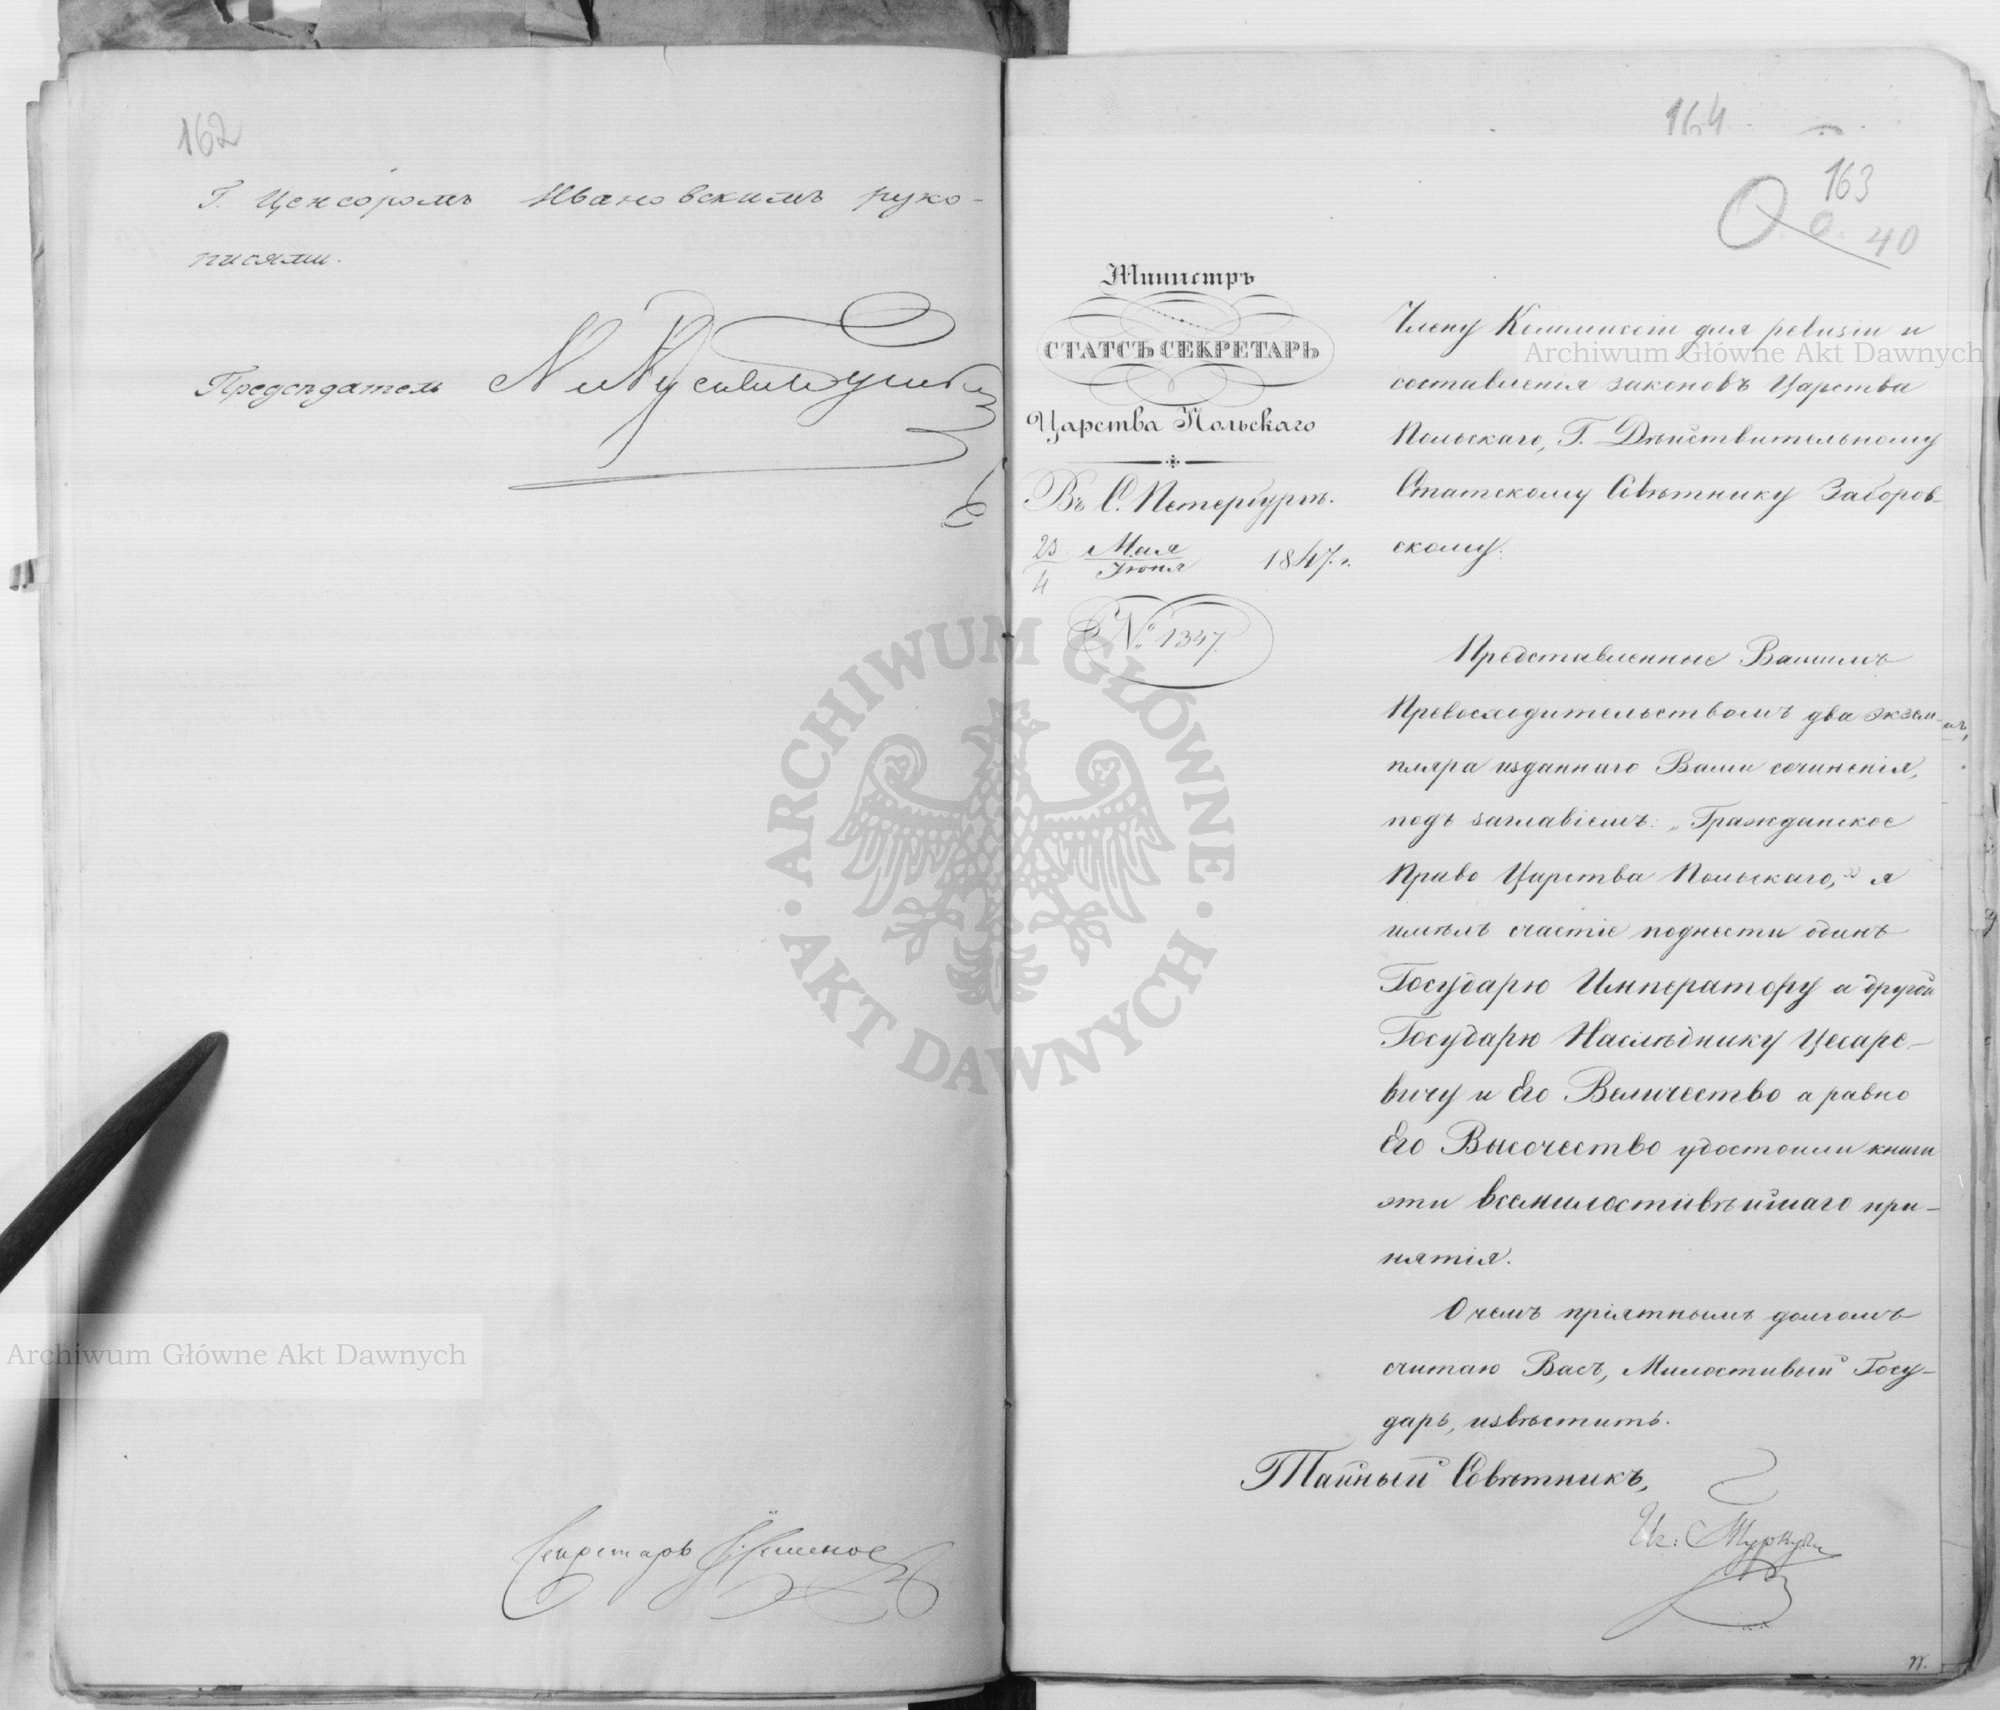 162
Г. Ценсоромъ Ивановскимъ руко-
писями.
Предсѣдатель
Секретарь
164
163
0. 40
Министръ
СТАТСЪ СЕКРЕТАРЬ
Царства Польскаго
Въ С. Петербургѣ.
23 Мая
4 Іюня 1847. г.
№ 1347.
Члену Коммиссіи для ревизіи и
составленія законовъ Царства
Польскаго, Г. Дѣйствительному
Статскому Совѣтнику Заборов-
скому.
Представленные Вашимъ
Превосходительствомъ два экзем-
пляра изданнаго Вами сочиненія,
подъ заглавіемъ: „Гражданское
Право Царства Польскаго," я
имѣлъ счастіе поднести одинъ
Государю Императору а другой
Государю Наслѣднику Цесаре-
вичу и Его Величество а равно
Его Высочество удостоили книги
эти всемилостивѣйшаго при-
нятія.
О чемъ пріятнымъ долгомъ
считаю Васъ, Милостивый Госу-
дарь, извѣстить.
Тайный Совѣтникъ,
Иг: Туркулъ
ARCHIWUM GŁÓWNE
AKT DAWNYCH
Archiwum Główne Akt Dawnych
Archiwum Główne Akt Dawnych